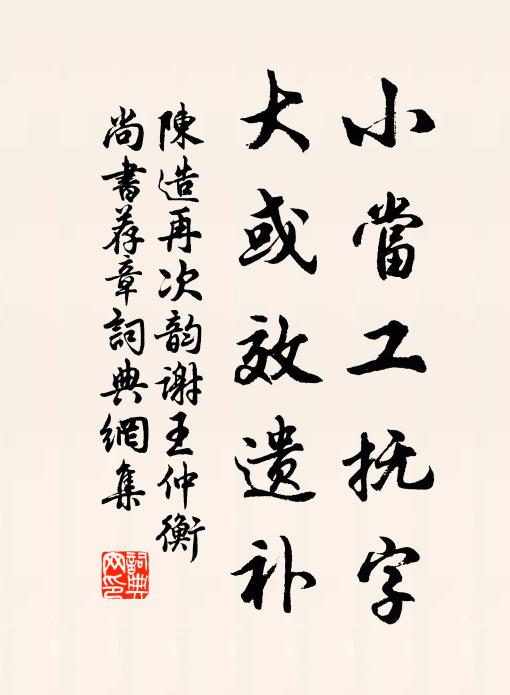 小當工抚字
大或效遗补
陳造再次韵谢王仲衡
尚書荐章詞典網集
詞典网印